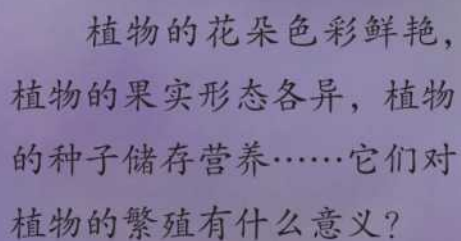 植物的花朵色彩鲜艳，
植物的果实形态各异，植物
的种子储存营养……它们对
植物的繁殖有什么意义？